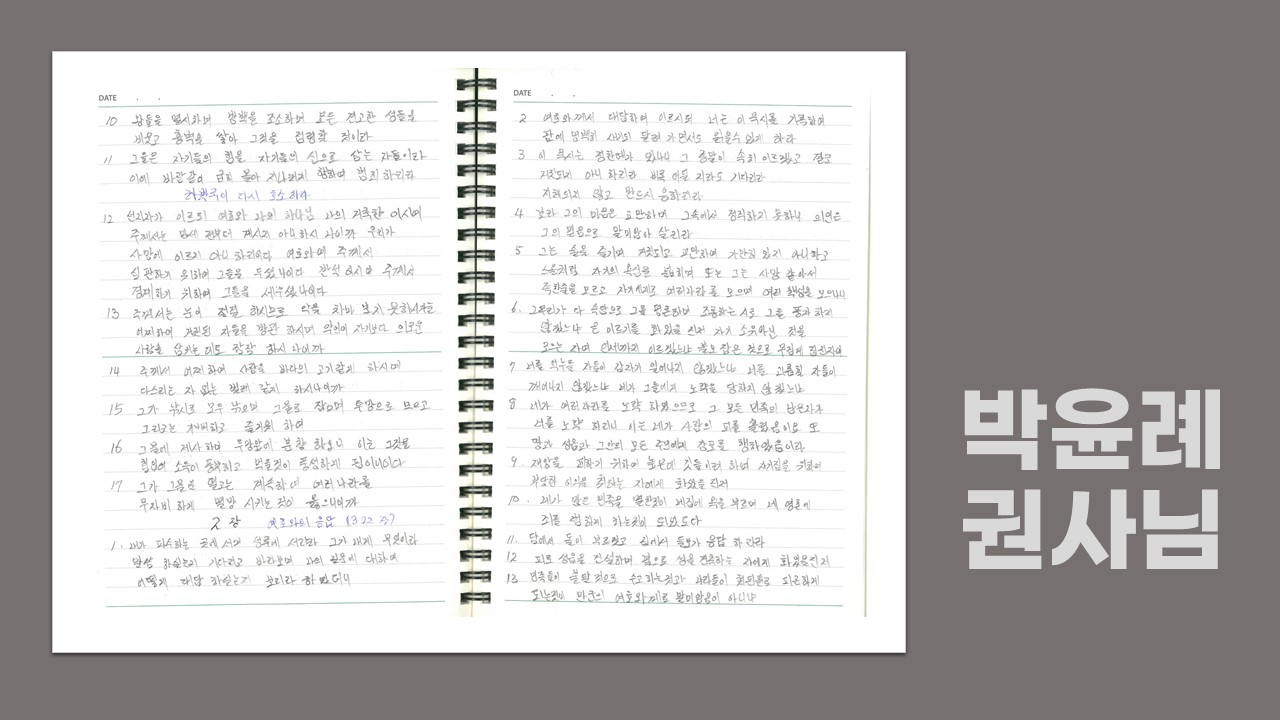 DATE . .
10 왕들을 멸시하며 방백을 조소하며 모든 견고한 성들을
비웃고 흉벽을 쌓아 그것을 점령할 것이라
11 그들은 자기들의 힘을 자기들의 신으로 삼는 자들이라
이에 바람같이 급히 몰아 지나치게 행하여 범죄하리라
하박국이 다시 호소하다
12 선지자가 이르되 여호와 나의 하나님 나의 거룩한 이시여
주께서는 만세 전부터 계시지 아니하시니이까 우리가
사망에 이르지 아니 하리이다 여호와여 주께서
심판하기 위하여 그들을 두셨나이다 반석이시여 주께서
경계하기 위하여 그들을 세우셨나이다
13 주께서는 눈이 정결 하시므로 악을 차마 보지 못하시거늘
어찌하여 거짓된 자들을 방관 하시며 악인이 자기보다 의로운
사람을 삼키는데도 잠잠 하시나이까
14 주께서 어찌하여 사람을 바다의 고기같게 하시며
다스리는 자 없는 벌레 같게 하시나이까
15 그가 낚시로 모두 낚으며 그물로 잡으며 투망으로 모으고
그리고는 기뻐하고 즐거워 하여
16 그물에 제사하며 투망앞에 분향 하오니 이는 그것을
힘입어 소득이 풍부하고 먹을것이 풍성하게 됨이니이다
17 그가 그물을 떨고는 계속하여 여러나라를
무자비 하게 멸망 시키는것이 옳으니이까
2 장 여호와의 응답
1. 내가 파수하는 곳에 서며 성루에 서리라 그가 내게 무엇이라
말씀 하실는지 기다리고 바라보며 나의 질문에 대하여
어떻게 대답 하실는지 보리라 하였더니
DATE . .
2 여호와께서 대답하여 이르시되 너는 이 묵시를 기록하여
판에 명백히 새기되 달려 가면서도 읽을수 있게 하라
3 이 묵시는 정한때가 있나니 그 종말이 속히 이르겠고 결코
거짓되지 아니 하리라 비록 더딜 지라도 기다리라
지체되지 않고 반드시 응하리라
4 보라 그의 마음은 교만하며 그속에서 정직하지 못하나 의인은
그의 믿음으로 말미암아 살리라
5 그는 술을 즐기며 거짓되고 교만하여 가만히 있지 아니하고
스올처럼 자기의 욕심을 넓히며 또는 그는 사망 같아서
족한줄을 모르고 자기에게로 여러나라를 모으며 여러 백성을 모으나니
6. 그무리가 다 속담으로 그를 평론하며 조롱하는 시로 그를 풍자 하지
않겠느냐 곧 이르기를 화 있을 진저 자기 소유아닌 것을
모으는 자여 언제까지 이르겠느냐 볼모 잡은 것으로 무겁게 짐진자여
7 너를 억누를 자들이 갑자기 일어나지 않겠느냐 너를 괴롭힐 자들이
깨어나지 않겠느냐 네가 그들에게 노략을 당하지 않겠느냐
8 네가 여러나라를 노략 하였으므로 그 모든 민족의 남은자가
너를 노략 하리니 이는 네가 사람의 피를 흘렸음이요 또
땅과 성읍과 그안의 모든 주민에게 강포를 행하였음이라
9. 재앙을 피하기 위하여 높은데 깃들이려 하며 자기집을 위하여
부당한 이익을 취하는 자에게 화있을 진저
10. 네가 많은 민족을 멸한것이 네집에 욕을 부르며 네 영혼에
죄를 범하게 하는것이 되었도다
11. 담에서 돌이 부르짖고 집에서 들보가 응답 하리라
12 피로 성읍을 건설하며 불의로 성을 건축하는 자에게 화있을진저
13 민족들이 불탈것으로 수고하는것과 나라들이 헛된일로 피곤하게
되는것이 만군의 여호와께로 말미암음이 아니냐
박윤례
권사님